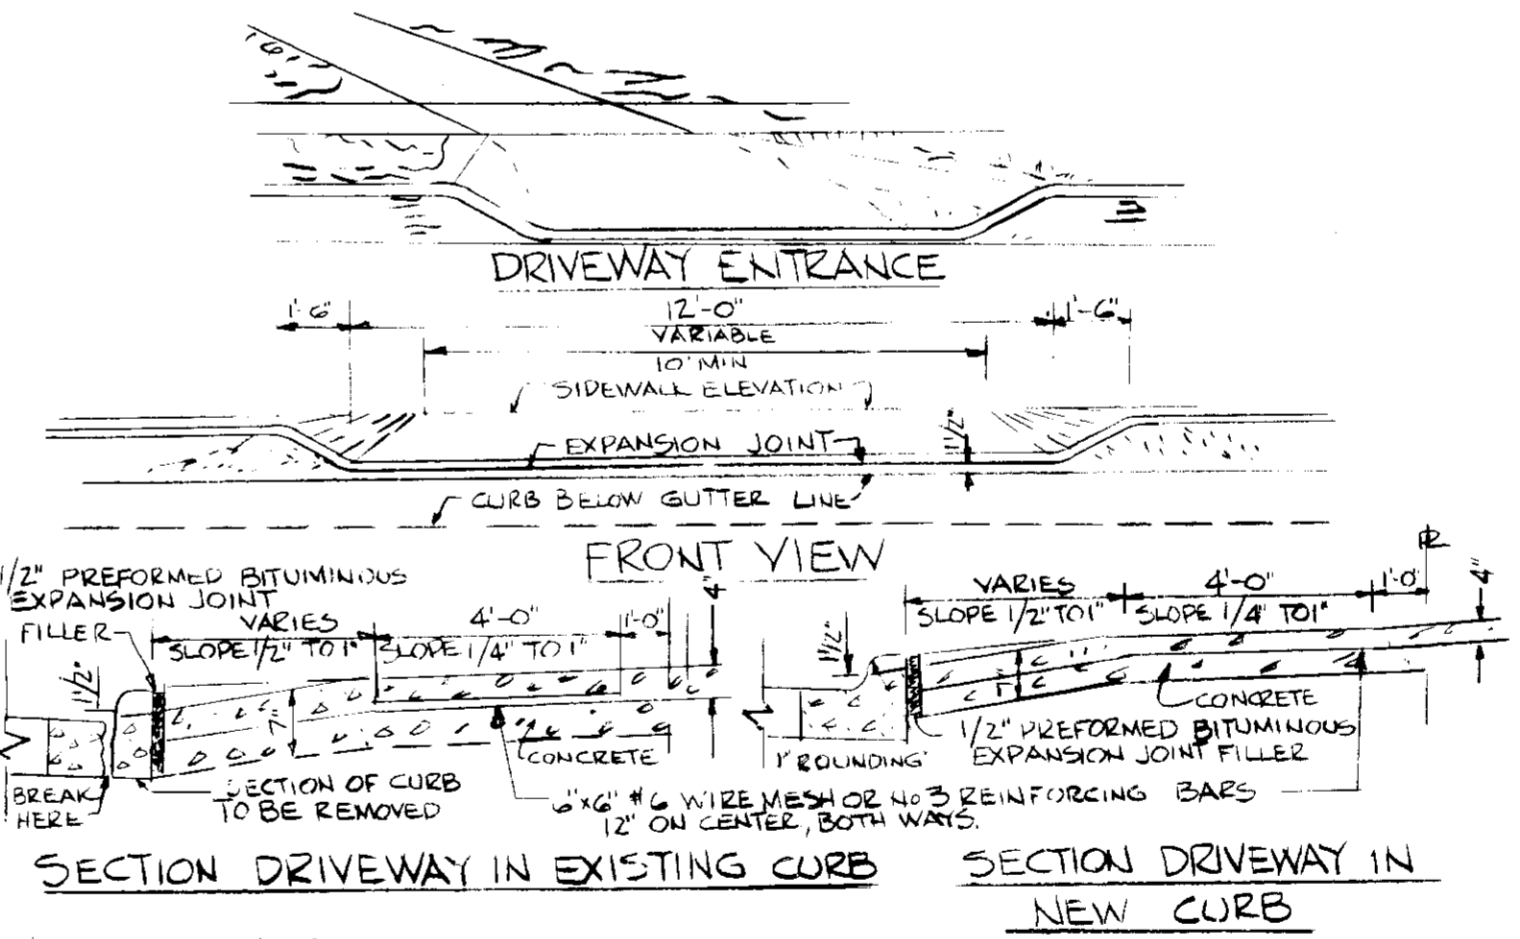 DRIVEWAY ENTRANCE
1'-6"
12'-0"
1'-6"
VARIABLE
10' MIN
SIDEWALK ELEVATION
1 1/2"
EXPANSION JOINT
CURB BELOW GUTTER LINE
FRONT VIEW
1/2" PREFORMED BITUMINOUS
EXPANSION JOINT
FILLER
VARIES
SLOPE 1/2" TO 1"
4'-0"
SLOPE 1/4" TO 1"
1'-0"
4"
1 1/2"
7"
CONCRETE
BREAK
HERE
SECTION OF CURB
TO BE REMOVED
6"x6" #6 WIRE MESH OR No 3 REINFORCING BARS
12" ON CENTER, BOTH WAYS.
SECTION DRIVEWAY IN EXISTING CURB
PL
VARIES
SLOPE 1/2" TO 1"
4'-0"
SLOPE 1/4" TO 1"
1'-0"
4"
1 1/2"
7"
CONCRETE
1/2" PREFORMED BITUMINOUS
EXPANSION JOINT FILLER
1" ROUNDING
SECTION DRIVEWAY IN
NEW CURB